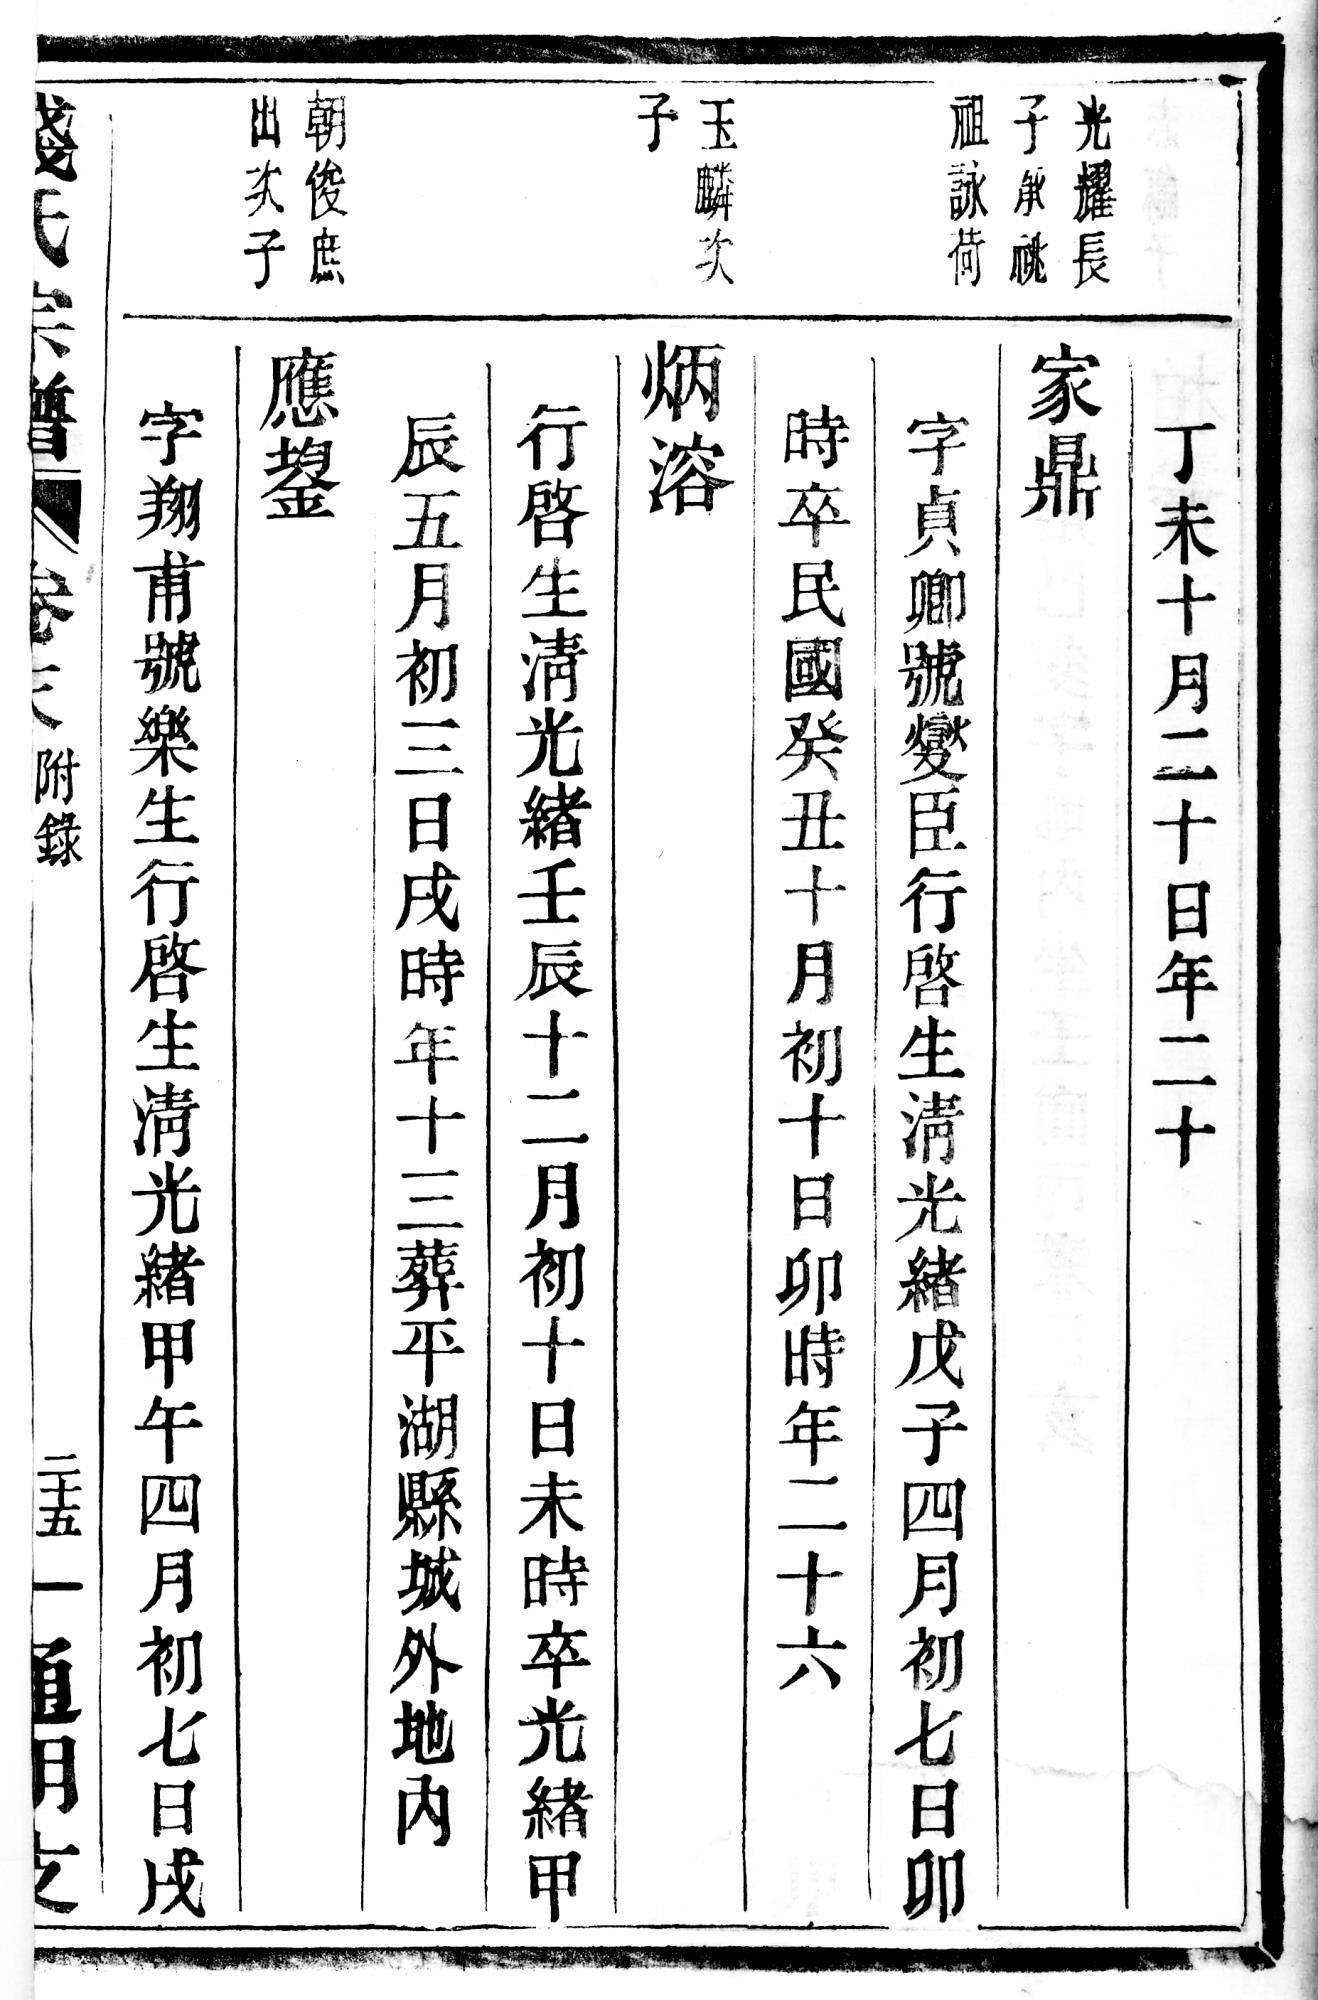 丁未十月二十日年二十
光耀長
子承祧
祖詠荷
家鼎
字貞卿號燮臣行啓生清光緒戊子四月初七日卯
時卒民國癸丑十月初十日卯時年二十六
玉麟次
子
炳溶
行啓生清光緒壬辰十二月初十日未時卒光緒甲
辰五月初三日戌時年十三葬平湖縣城外地內
朝俊庶
出次子
應鋆
字翔甫號樂生行啓生清光緒甲午四月初七日戌
錢氏宗譜 卷 附錄 二十五 通明支